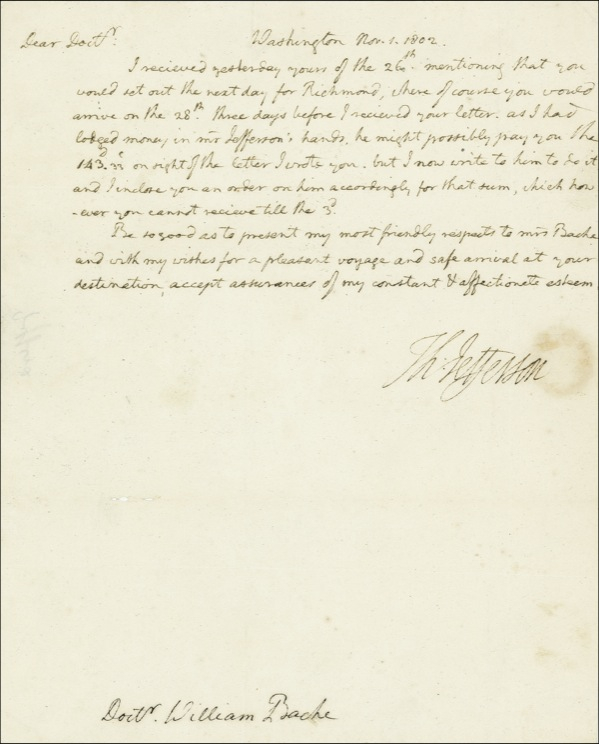 Dear Doct^r. Washington Nov. 1. 1802.
I recieved yesterday yours of the 26^th. mentioning that you
would set out the next day for Richmond, where of course you would
arrive on the 28^th. three days before I recieved your letter. as I had
lodged money in mr Jefferson's hands, he might possibly pay you the
143. on sight of the letter I wrote you. but I now write to him to do it
and I inclose you an order on him accordingly for that sum, which how
-ever you cannot recieve till the 3^d.
Be so good as to present my most friendly respects to mrs Bache
and with my wishes for a pleasant voyage and safe arrival at your
destination, accept assurances of my constant & affectionate esteem
Th: Jefferson
Doct^r. William Bache